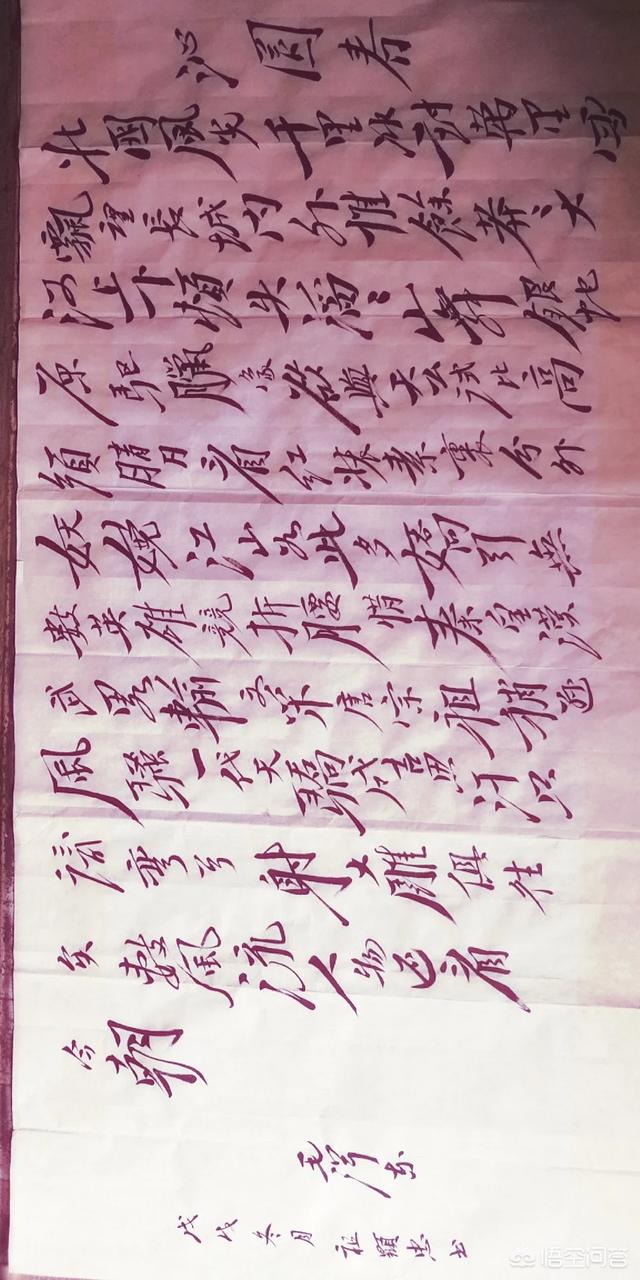 沁園春
北國風光千里冰封萬里雪
飄望長城内外惟餘莽々大
河上下頓失滔々山舞銀蛇
原馳臘象欲與天公試比高
須晴日看紅妝素裹分外
妖娆江山如此多嬌引無
數英雄競折腰惜秦皇漢
武畧輸文采唐宗祖稍遜
風騷一代天驕成吉思汗只
識彎弓射大雕俱往
矣數風流人物还看
今朝
毛澤东
戊戌冬月祖顯忠书
悟空问答